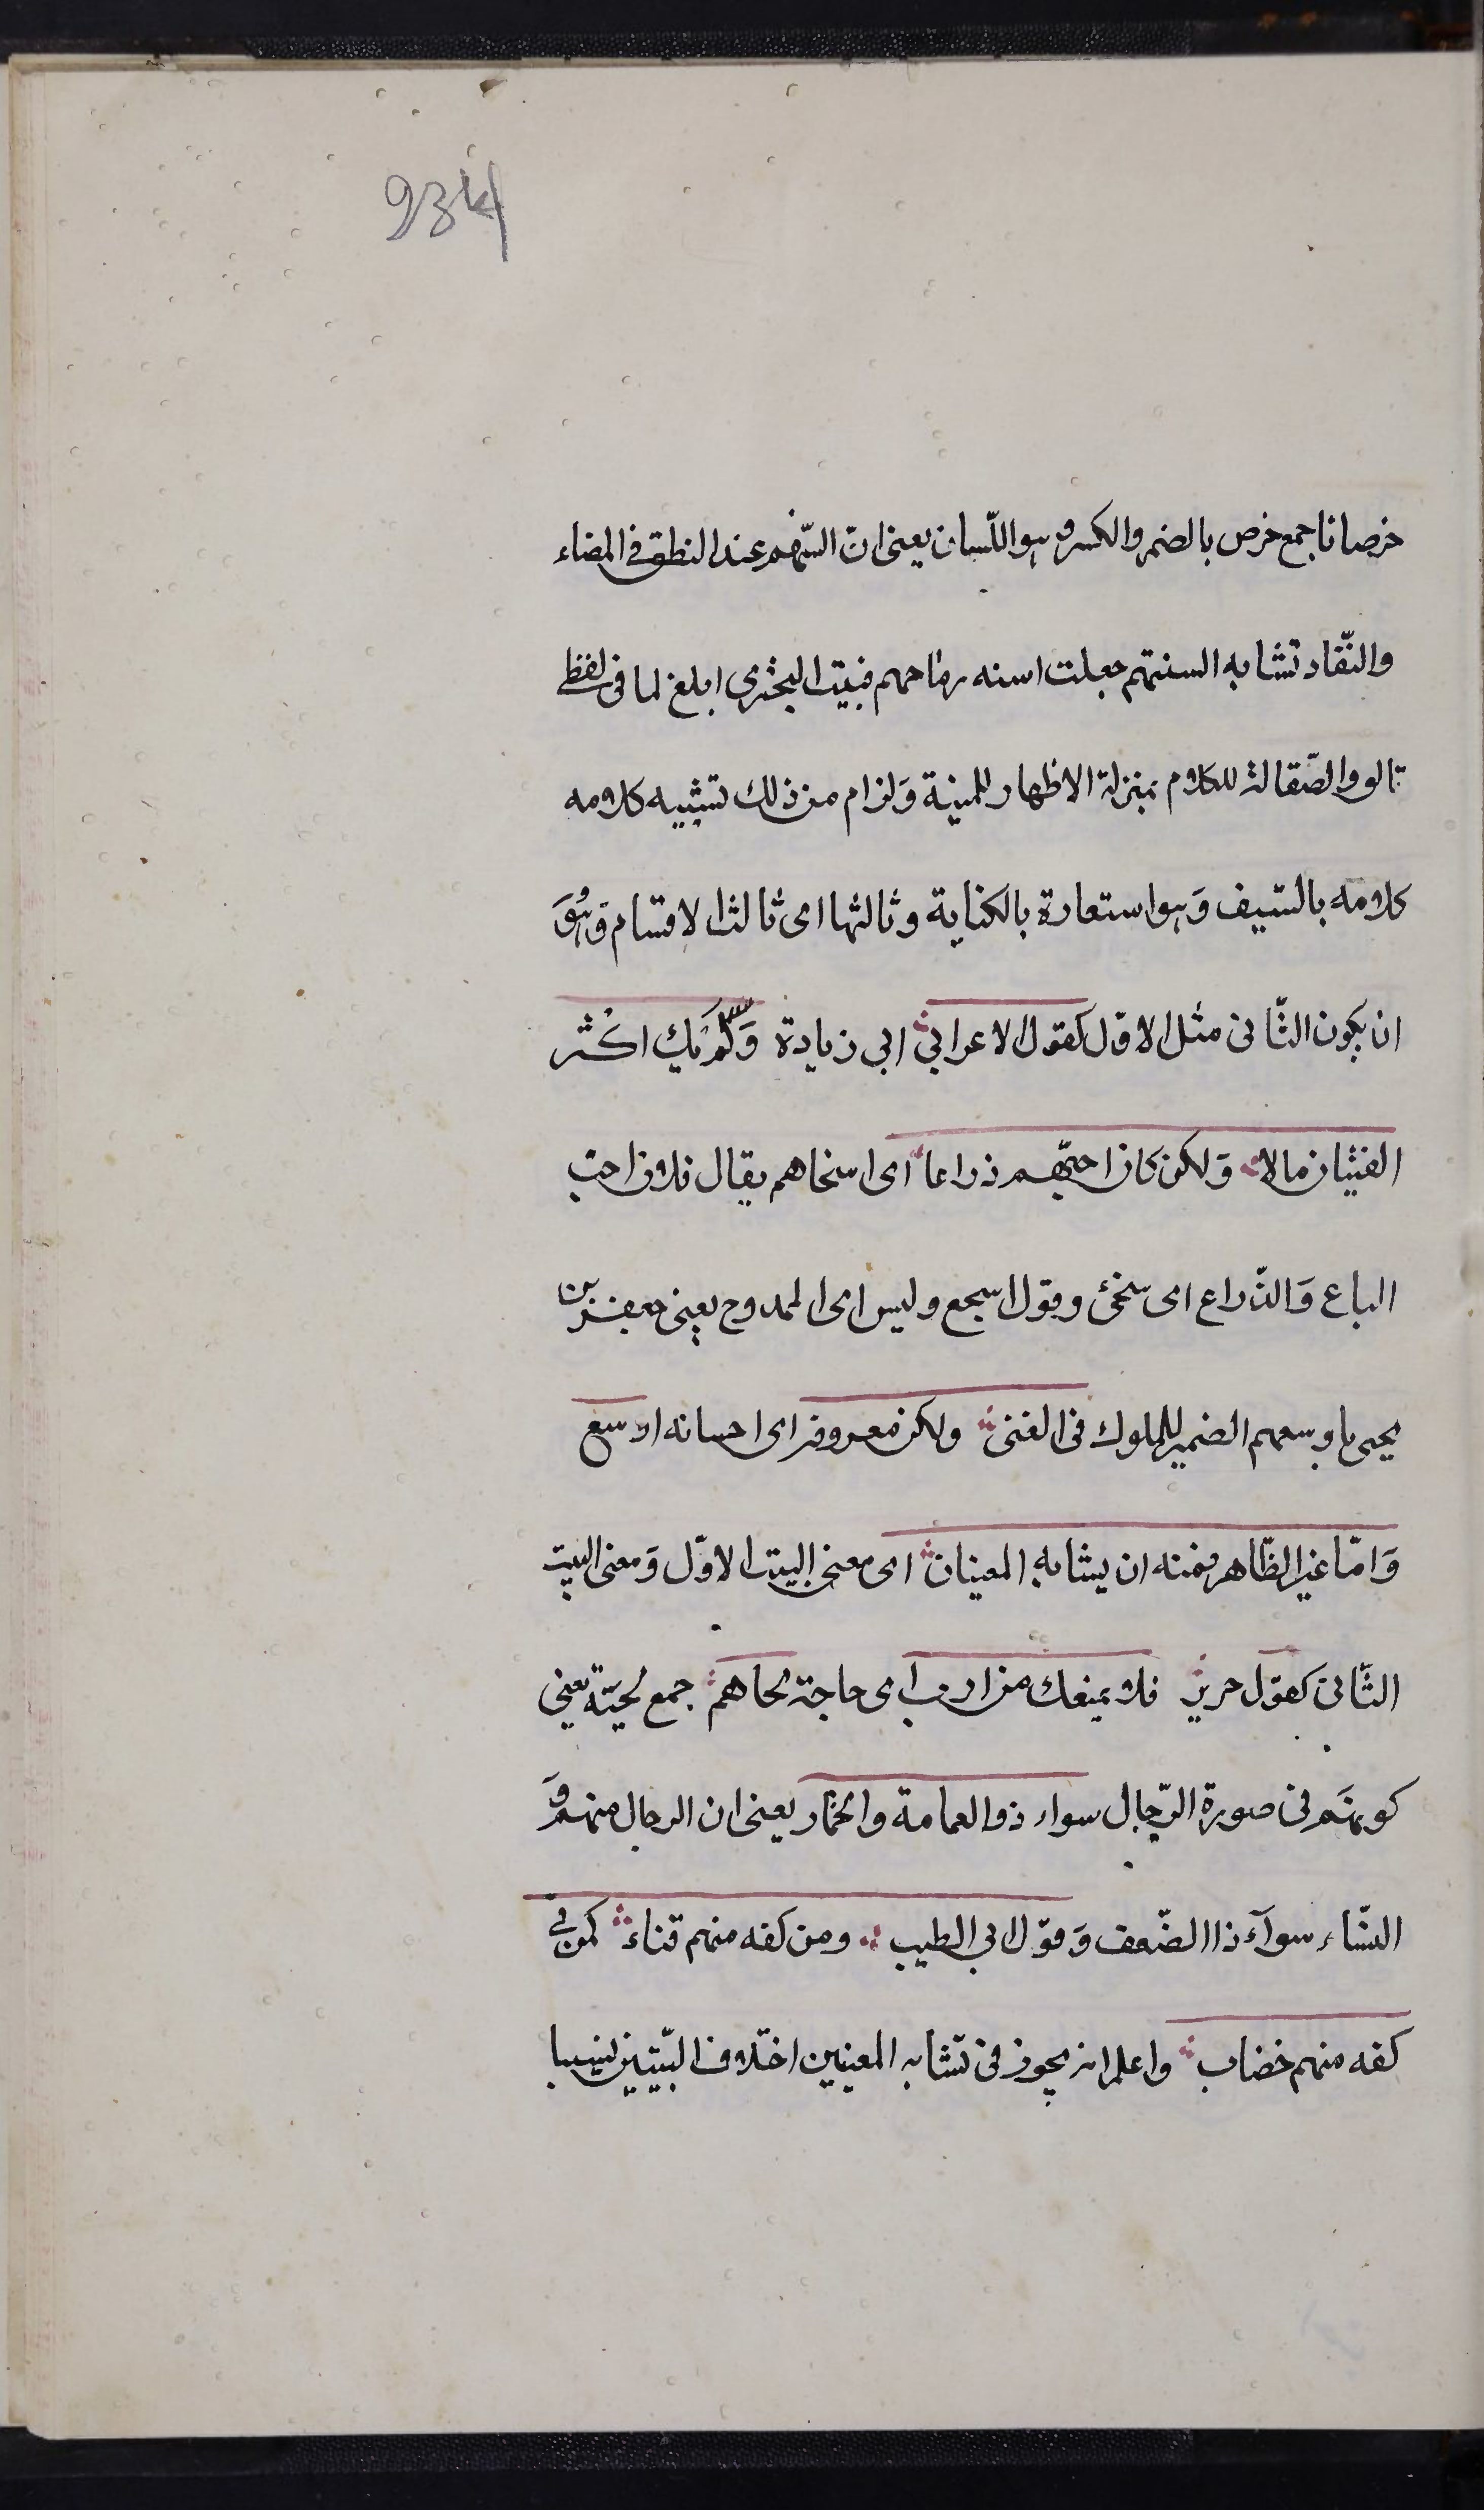 934
خرصانا جمع خرص بالضم والكسر وهو اللّسان يعنى انّ السنهم عند النطق فى المضاء
والنّفاد تشابه السنتهم جعلت اسنه رماحهم فبيت البحثرى ابلغ لما فى لفظى
تالو والصّقالة للكلام بمنزلة الاظهار للمينة وَلزام من ذلك تشبيه كلامه
كلامه بالسّيف وَهو استعارة بالكناية وثالثها اى ثالث الاقسام وَهُوَ
ان يكون الثّانى مثل الاوّل كقول الاعرابىّ ابى زيادة وَلَّمْ يك اكْثر
الفتيان مالا وَلكن كان احبّهم ذراعا اى اسخاهم يقال فلان احب
الباع وَالذّراع اى سخىّ وقول اسجع وليس اى الممدوح يعنى جعفر بن
يحيى باوسعهم الضمير للملوك فى الغنى ولكن معروفه اى احسانه اوسع
وَامّا غير الظّاهر فمنه ان يشابه المعنيان اى معنى البيت الاوّل وَمعنى البيت
الثّانى كقول جرير فلا يمنعك من ارب اى حاجة لحاهم جمع لحيّة يعنى
كونهَم فى صورة الرّجال سواء ذو العمامة والخمار يعنى ان الرجال منهم وَ
النسّاء سوآء ذا الضّعف وَقوّل ابى الطيب ومن كفه منهم قناء كمن فى
كفه منهم خضاب واعلم انه يجوز فى تشابه المعنيين اختلاف البّيتين نسيبا